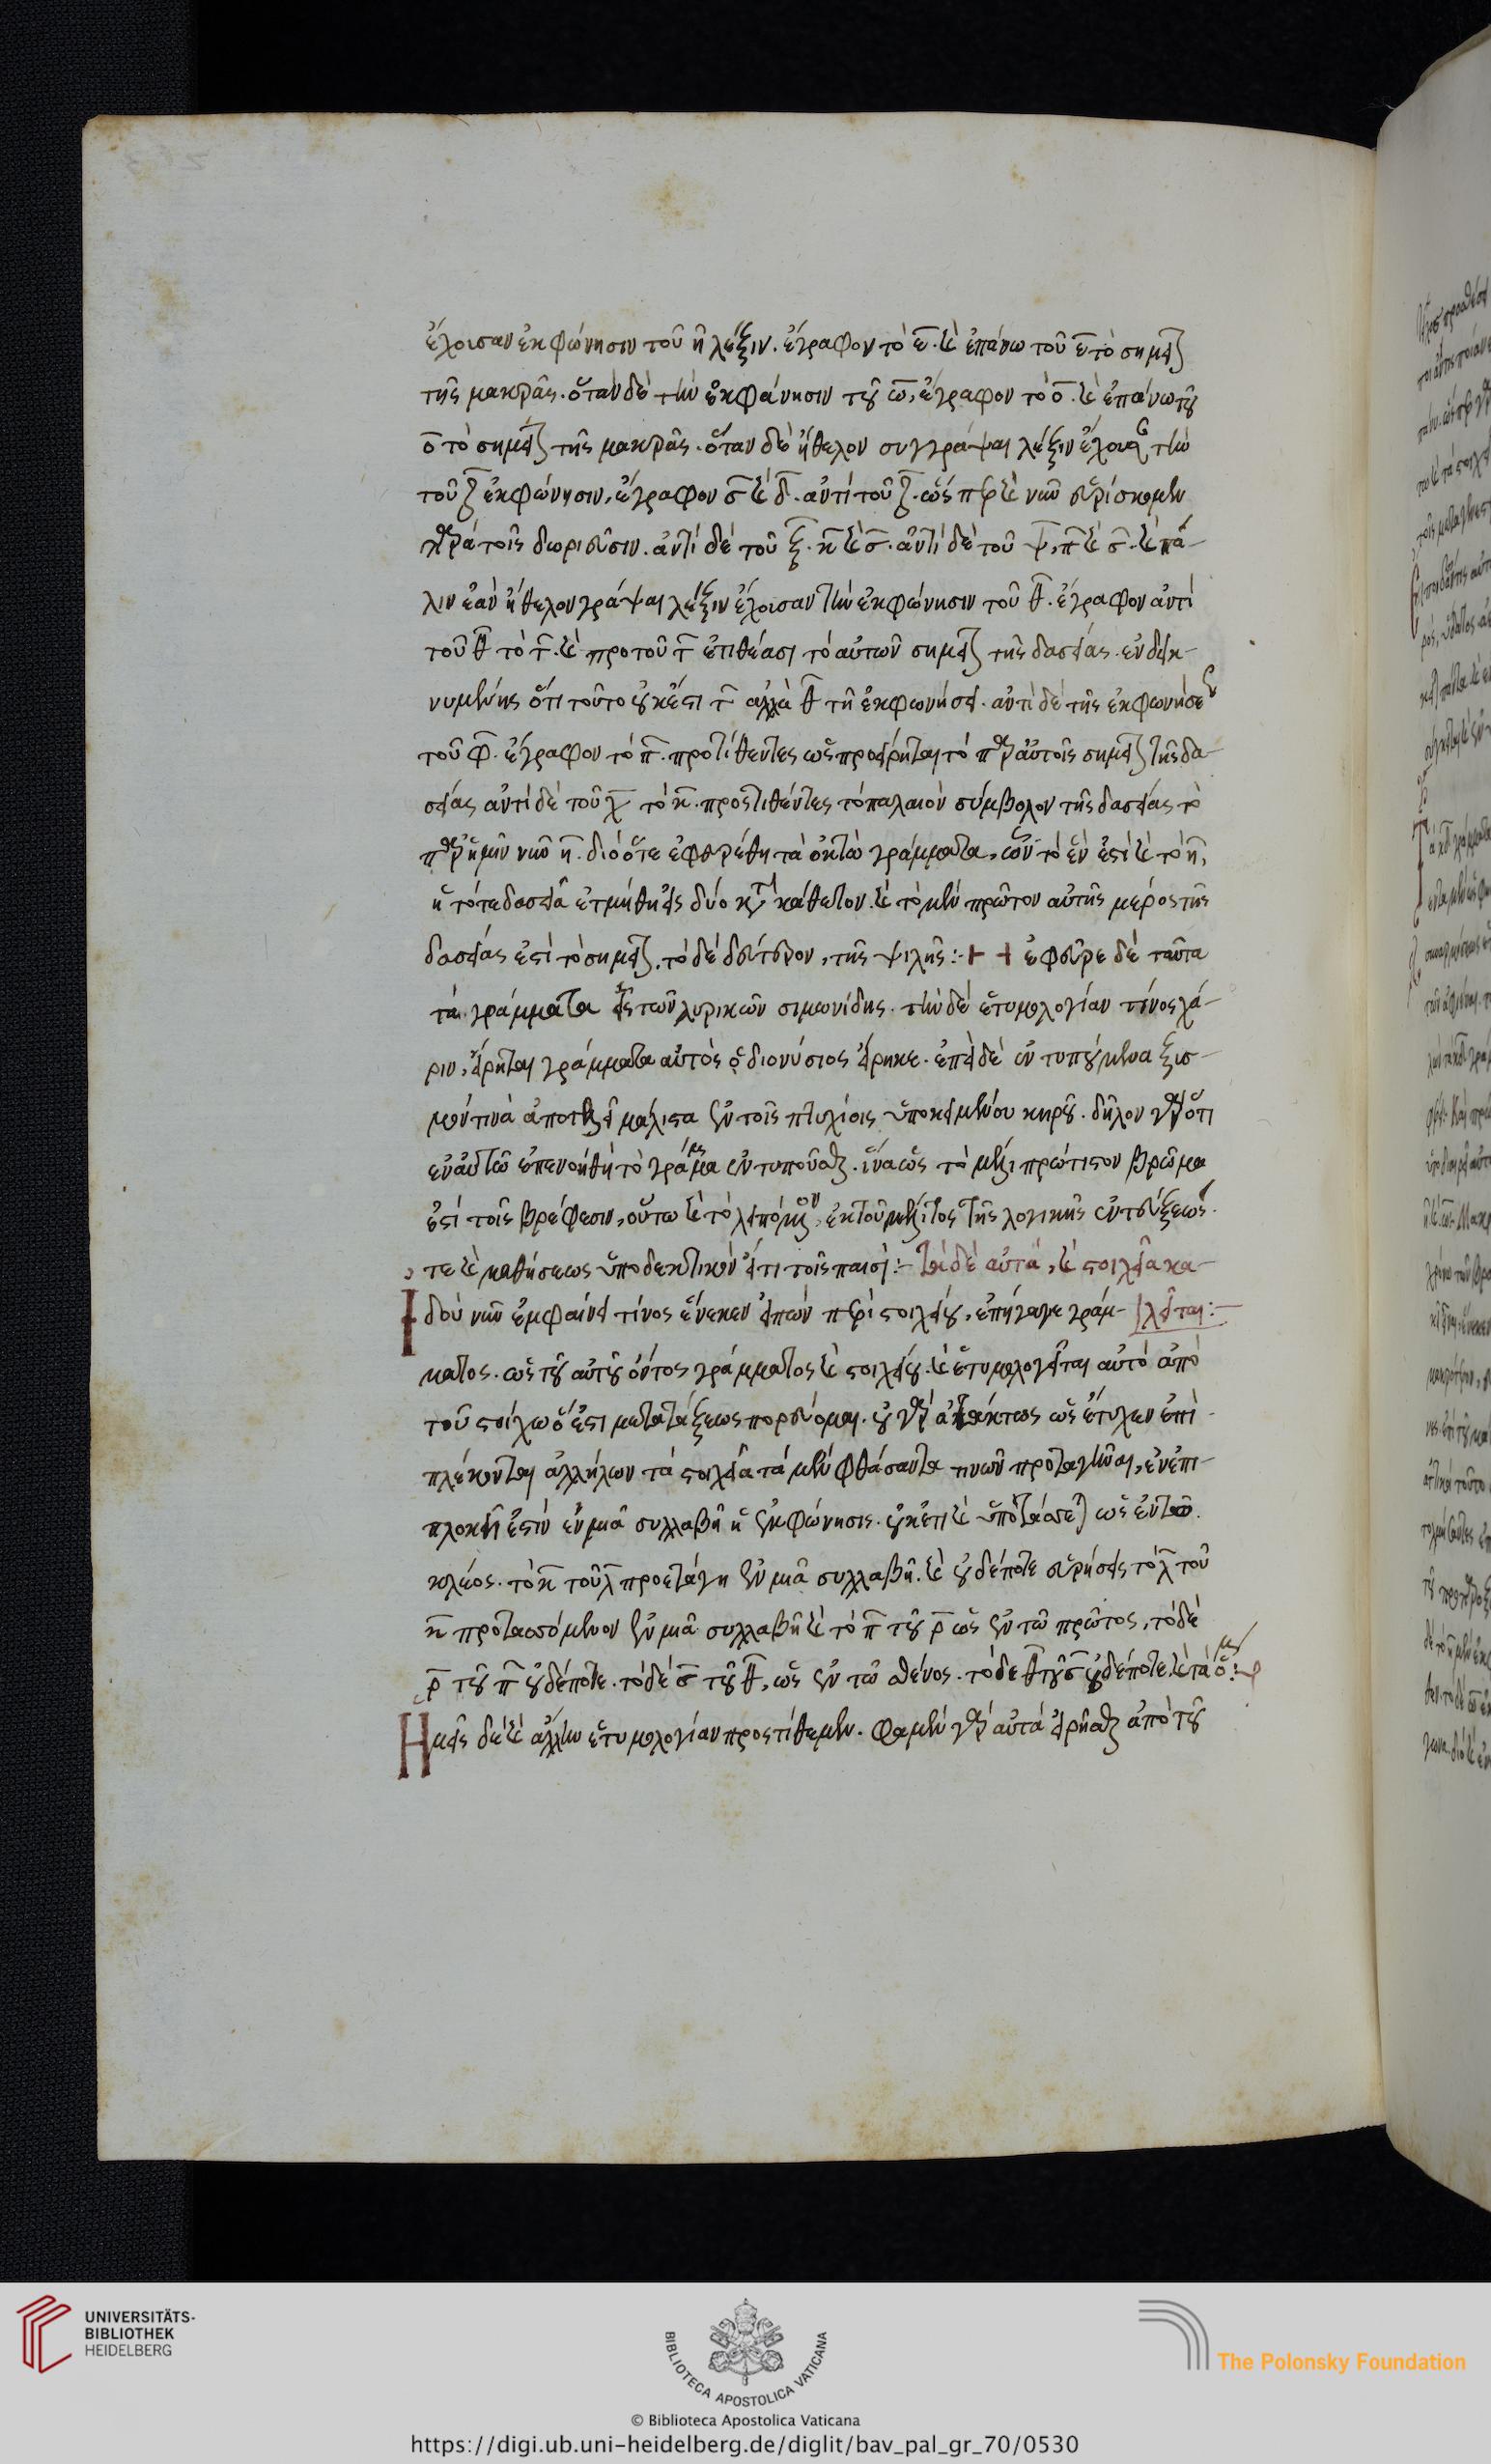 ἔχοισαν ἐκφώνησιν τοῦ η λέξιν. ἔγραφον τὸ ε. καὶ ἐπάνω τοῦ ε τὸ σημεῖον
τῆς μακρᾶς. ὅταν δὲ τὴν ἐκφώνησιν τοῦ ω, ἔγραφον τὸ ο. καὶ ἐπάνω τοῦ
ο τὸ σημεῖον τῆς μακρᾶς. ὅταν δὲ ἤθελον συγγράψαι λέξιν ἔχουσαν τὴν
τοῦ ζ ἐκφώνησιν, ἔγραφον σ καὶ δ. ἀντὶ τοῦ ζ. ὥσπερ καὶ νῦν εὑρίσκομεν
παρὰ τοῖς δωριεῦσιν. ἀντὶ δὲ τοῦ ξ. κ καὶ σ. ἀντὶ δὲ τοῦ ψ, π καὶ σ. καὶ πά-
λιν ἐὰν ἤθελον γράψαι λέξιν ἔχοισαν τὴν ἐκφώνησιν τοῦ θ. ἔγραφον ἀντὶ
τοῦ θ τὸ τ. καὶ προ τοῦ τ ἐπιθέασι τὸ αὐτῶν σημεῖον τῆς δασείας. ἐνδεικ-
νυμένης ὅτι τοῦτο οὐκ ἔστι τ ἀλλὰ θ τῇ ἐκφωνήσει. ἀντὶ δὲ τῆς ἐκφωνήσεως
τοῦ φ. ἔγραφον τὸ π. προτιθέντες ὡς προείρηται τὸ παρ' αὐτοῖς σημεῖον τῆς δα-
σείας ἀντὶ δὲ τοῦ χ τὸ κ. προστιθέντες τὸ παλαιὸν σύμβολον τῆς δασείας τὸ
παρ' ἡμῖν νῦν η. διὸ ὅτε ἐφευρέθη τὰ ὀκτὼ γράμματα, ὧν τὸ ἕν ἐστὶ καὶ τὸ η,
ἡ τότε δασεῖα ἐτμήθη εἰς δύο κατὰ κάθετον. καὶ τὸ μὲν πρῶτον αὐτῆς μέρος τῆς
δασείας ἐστὶ τὸ σημεῖον, τὸ δὲ δεύτερον, τῆς ψιλῆς :- Ⱶ ⱶ ἐφεῦρε δὲ ταῦτα
τὰ γράμματα εἷς τῶν λυρικῶν σιμωνίδης. τὴν δὲ ἐτυμολογίαν τίνος χά-
ριν, εἴρηται γράμματα αὐτὸς ὁ διονύσιος εἴρηκε. ἐπεὶ δὲ ἐντυπούμενα ξυσ-
μόν τινὰ ἀποτελεῖ μάλιστα ἐν τοῖς πτυχίοις ὑποκειμένου κηροῦ. δῆλον γὰρ ὅτι
ἐν αὐτῷ ἐπενοήθη τὸ γράμμα ἐντυποῦσθαι. ἵνα ὡς τὸ μέλι πρώτιστον βρῶμα
ἐστὶ τοῖς βρέφεσιν, οὕτω καὶ τὸ λειπόμενον, ἐκ τοῦ μέλιτος τῆς λογικῆς ἐντεύξεως
τε καὶ μαθήσεως ὑποδεκτικὸν ἔτι τοῖς παισί :- Τὰ δὲ αὐτά, καὶ στοιχεῖα κα-
Ἰδοὺ νῦν ἐμφαίνει τίνος ἕνεκεν εἰπὼν περὶ στοιχείου, ἐπήγαγε γράμ- λεῖται :-
ματος. ὡς τοῦ αὐτοῦ ὄντος γράμματος καὶ στοιχείου. καὶ ἐτυμολογεῖται αὐτὸ ἀπὸ
τοῦ στοίχω ὅ ἐστι μετὰ τάξεως πορεύομαι. οὐ γὰρ ἀτάκτως ὡς ἔτυχεν ἐπι-
πλέκονται ἀλλήλων τὰ στοιχεῖα τὰ μὲν φθάσαντα τινῶν προταγῆναι, ἐν ἐπι-
πλοκῇ ἐστὶν ἐν μιᾷ συλλαβῇ ἡ ἐκφώνησις. οὐκέτι καὶ ὑποτάσσεται ὡς ἐν τῷ
κλέος. τὸ κ τοῦ λ προετάγη ἐν μιᾷ συλλαβῇ. καὶ οὐδέποτε εὑρήσεις τὸ λ τοῦ
κ προτασσόμενον ἐν μιᾷ συλλαβῇ καὶ τὸ π τοῦ ρ ὡς ἐν τῷ πρῶτος, τὸ δὲ
ρ τοῦ π οὐδέποτε. τὸ δὲ σ τοῦ θ, ὡς ἐν τῷ σθένος. τὸ δὲ θ τοῦ σ οὐδέποτε. καὶ τὰ ὅμ :-
Ἡμεῖς δὲ καὶ ἄλλην ἐτυμολογίαν προστίθεμεν. φαμὲν γὰρ αὐτὰ εἰρῆσθαι ἀπὸ τοῦ
UNIVERSITÄTS-
BIBLIOTHEK
HEIDELBERG
BIBLIOTECA APOSTOLICA VATICANA
The Polonsky Foundation
© Biblioteca Apostolica Vaticana
https://digi.ub.uni-heidelberg.de/diglit/bav_pal_gr_70/0530